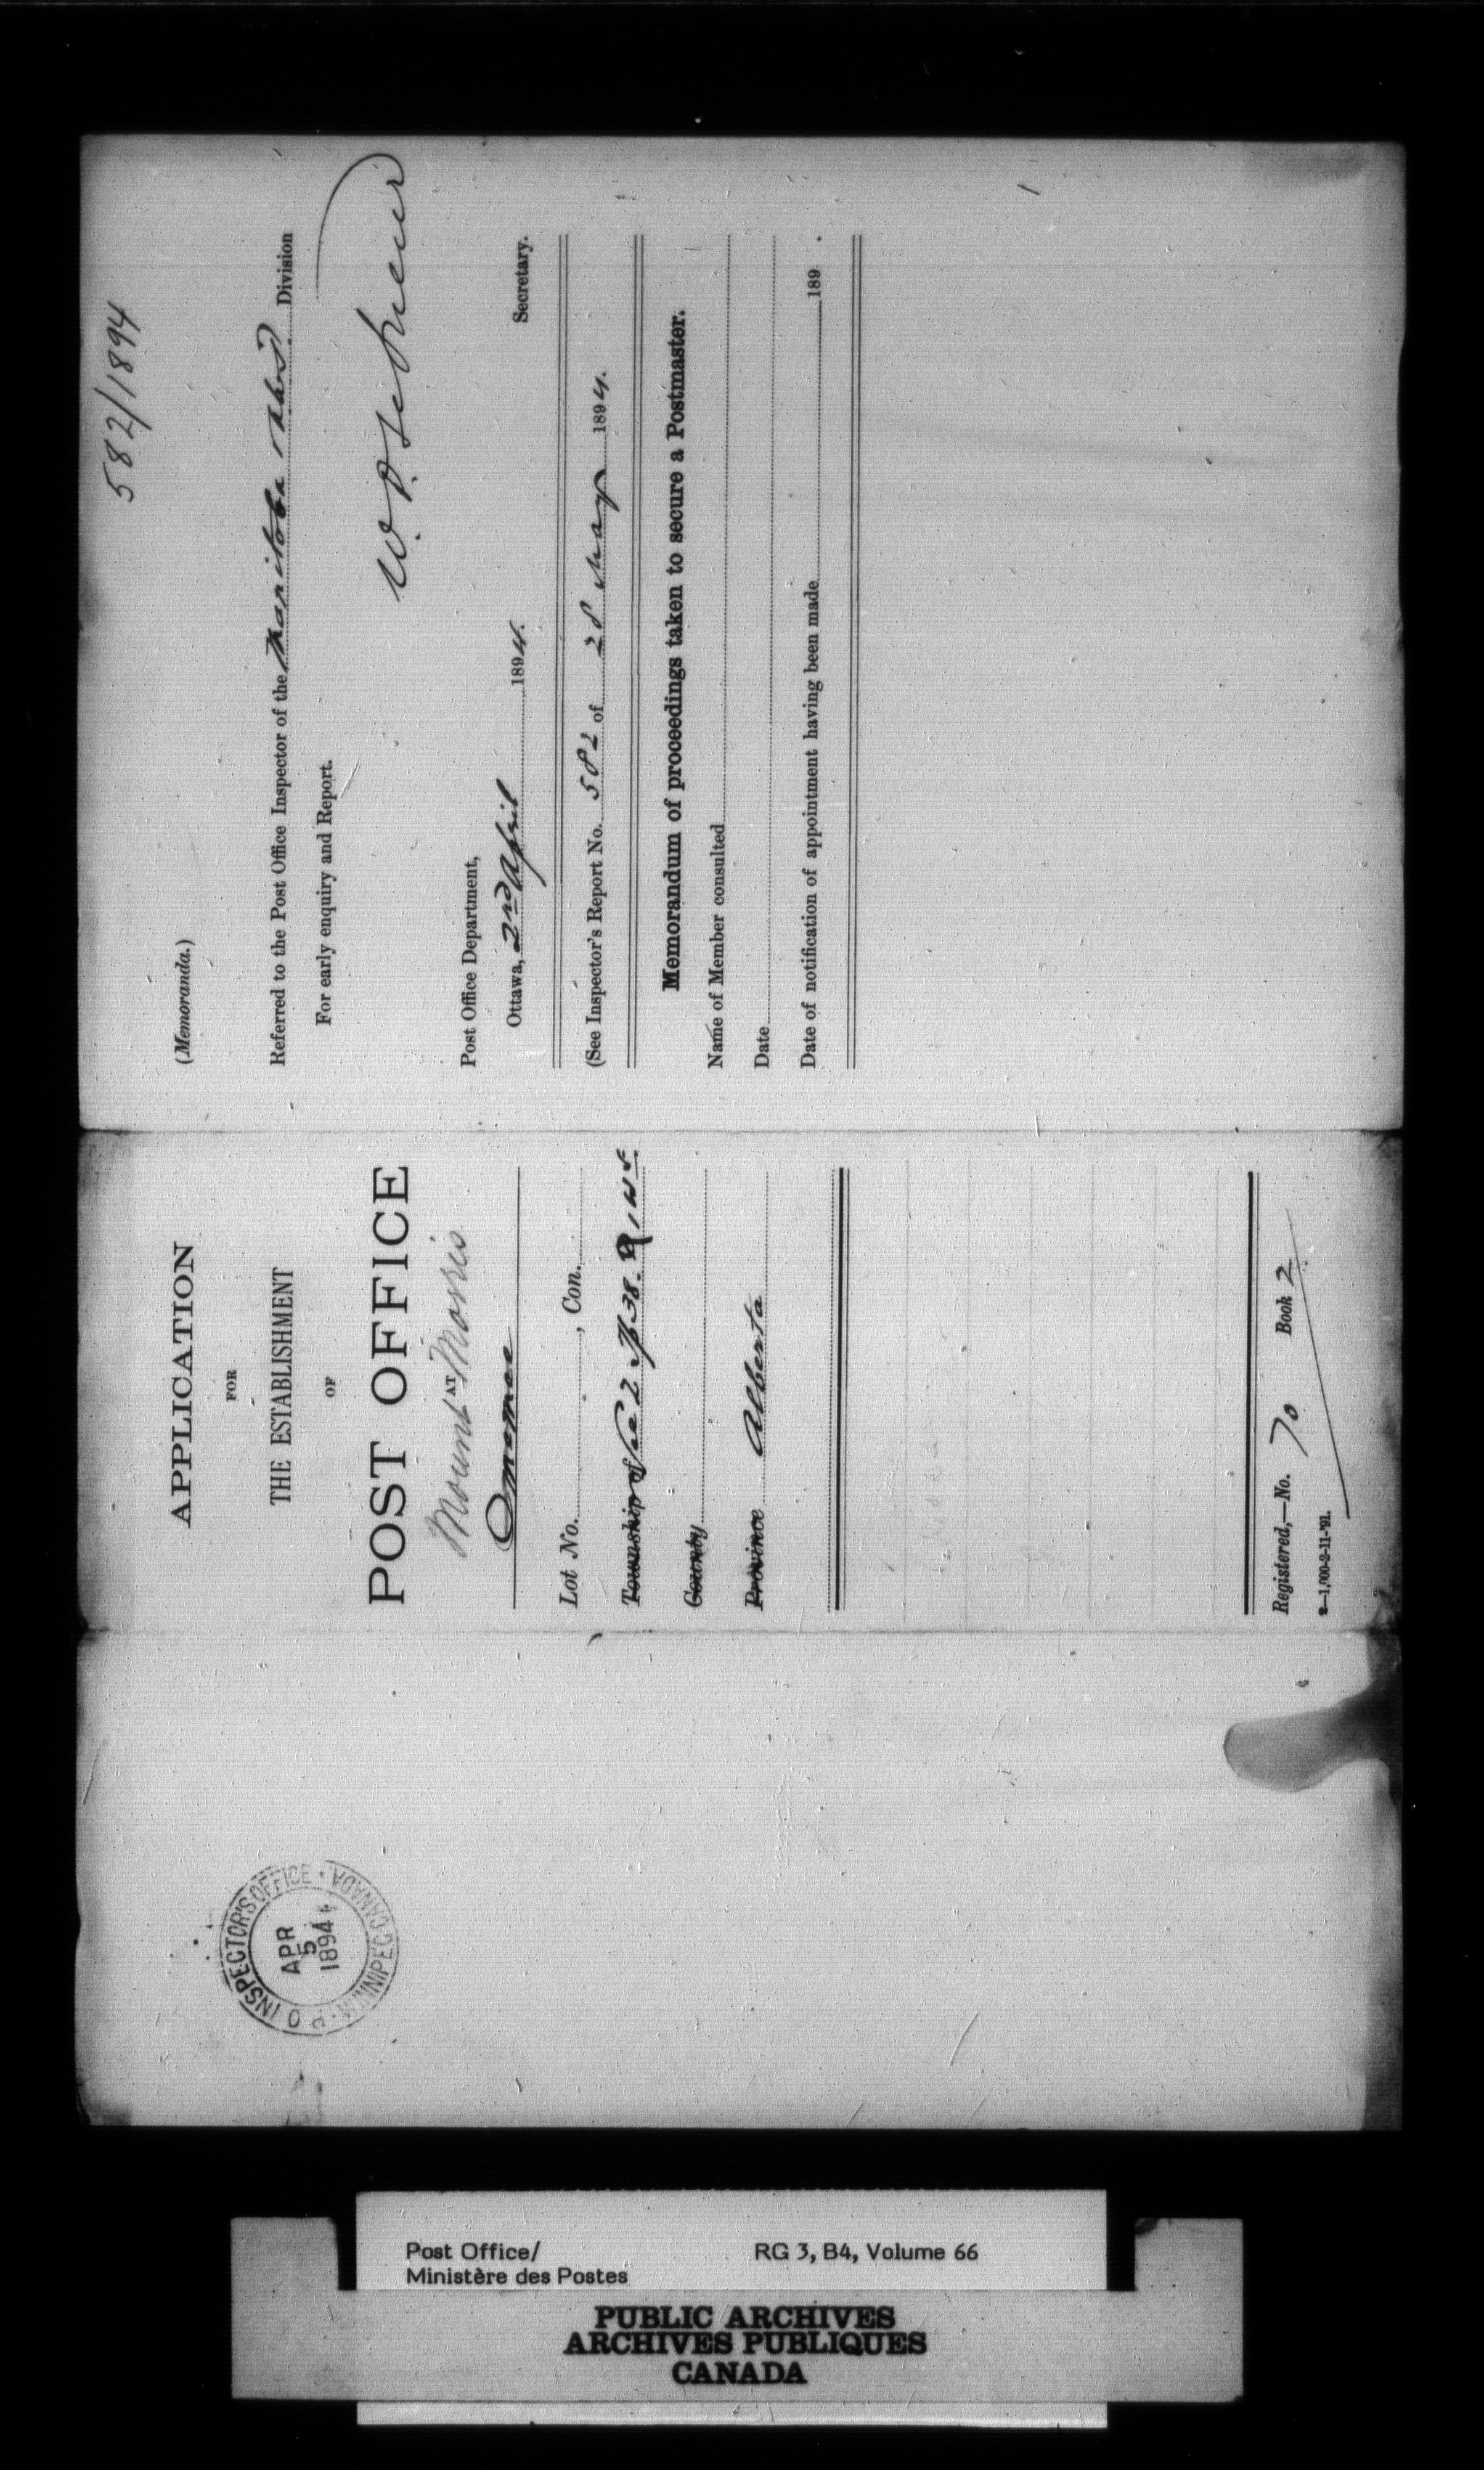 582/1894
(Memoranda.)
Referred to the Post Office Inspector of the Manitoba Division
For early enquiry and Report.
Post Office Department,
Ottawa, 2nd April 1894.
Secretary.
(See Inspector's Report No. 582 of 28 May 1894.
Memorandum of proceedings taken to secure a Postmaster.
Name of Member consulted
Date
Date of notification of appointment having been made 189 .
APPLICATION
FOR
THE ESTABLISHMENT
OF
POST OFFICE
AT
Mount Morris
Omemee
Lot No. , Con.
Township of Sec 2 Tp 38. R 1 W 5.
County
Province Alberta
Registered,—No. 70 Book 2
2—1,000-2-11-'91.
P O INSPECTOR'S OFFICE · WINNIPEG CANADA
APR
5
1894
Post Office/
Ministère des Postes
RG 3, B4, Volume 66
PUBLIC ARCHIVES
ARCHIVES PUBLIQUES
CANADA